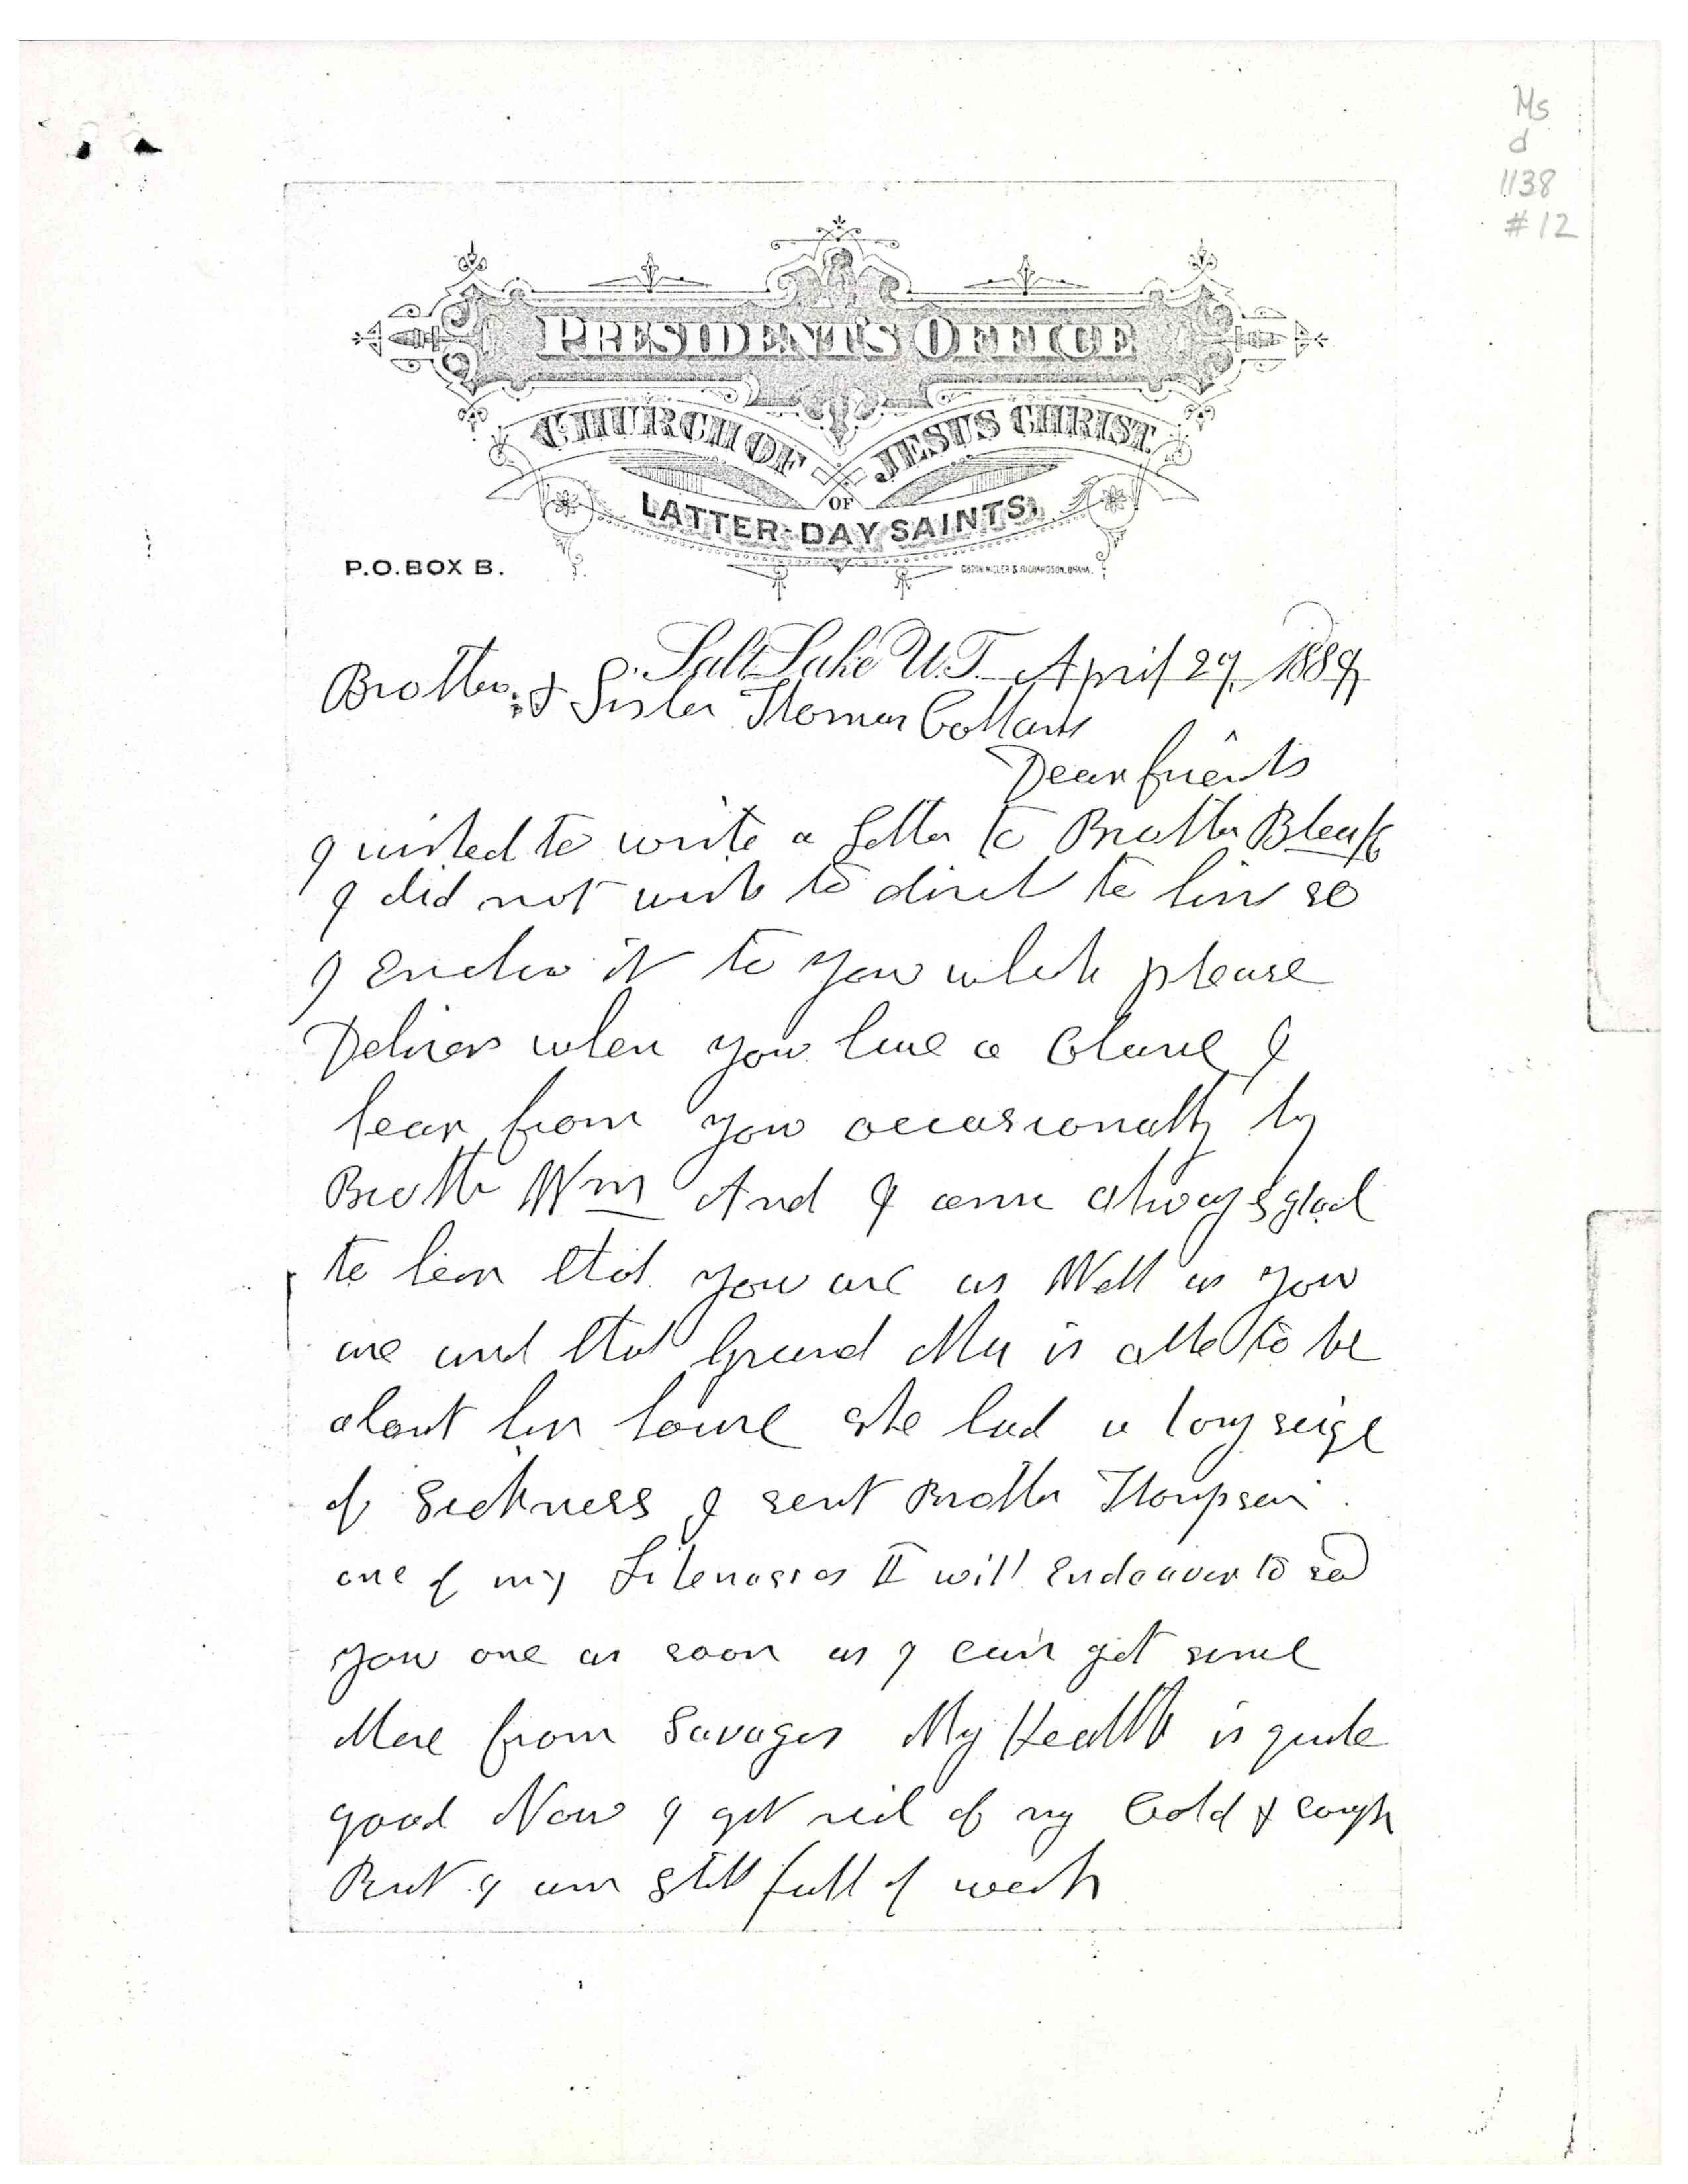 Ms
d
1138
#12
PRESIDENT'S OFFICE
CHURCH OF JESUS CHRIST
OF
LATTER-DAY SAINTS,
P.O. BOX B.
Salt Lake U.T. April 29, 1889
Brother & Sister Thomas Cottam
Dear friends
I wished to write a Letter to Brother Bleak
I did not wish to direct to him so
I Enclose it to you which please
Deliver when you have a Chance I
hear from you occasionally by
Brother Wm And I am always glad
to hear that you are as Well as you
are and that Grand Ma is able to be
about her house she had a long seige
of Sickness I sent Brother Thompson
one of my Likenesses I will Endeavor to send
you one as soon as I can get some
More from Savages My Health is quite
good Now I got rid of my Cold & cough
But I am still full of work